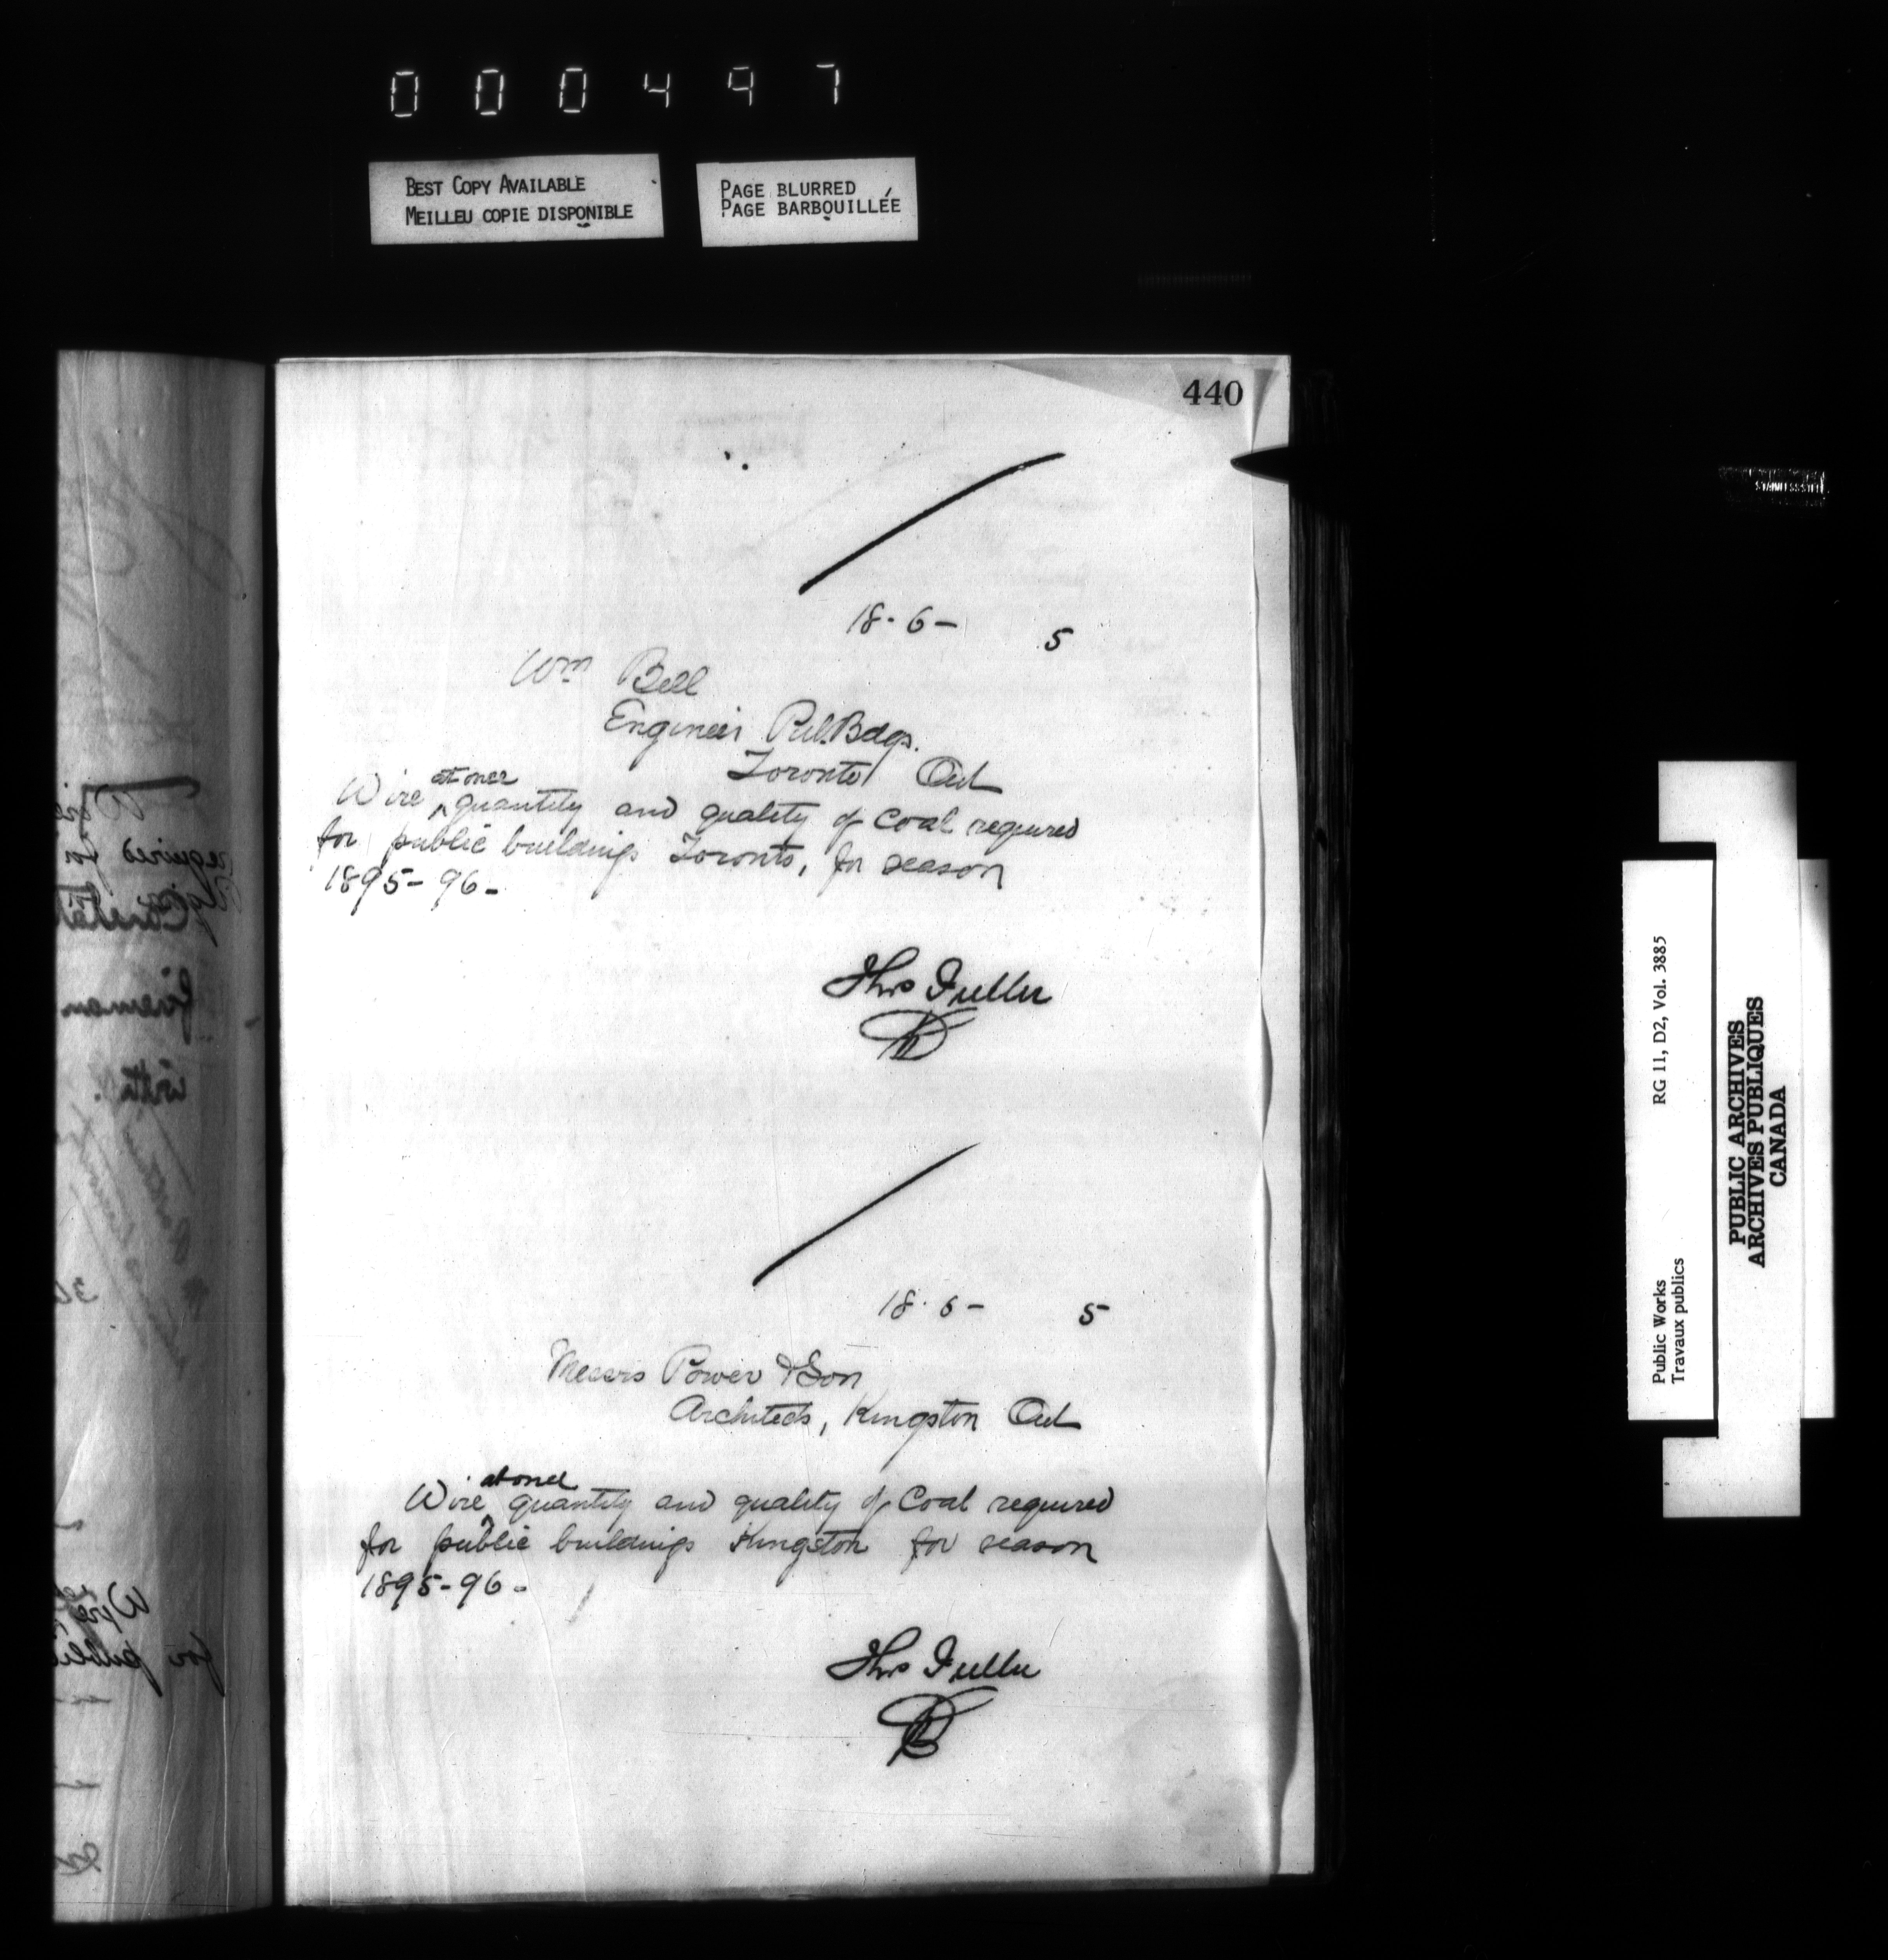 000497
BEST COPY AVAILABLE
MEILLEU COPIE DISPONIBLE
PAGE BLURRED
PAGE BARBOUILLÉE
440
18-6- 5
Wm Bell
Engineer Pub. Bdgs.
Toronto Ont
at once
Wire ^ quantity and quality of Coal required
for public buildings Toronto, for season
1895-96-
Thos Fuller
18.6- 5
Messrs Power & Son
Architects, Kingston Ont
at once
Wire ^ quantity and quality of Coal required
for public buildings Kingston for season
1895-96-
Thos Fuller
required
for
fireman
Wire
for public
STAINLESS STEEL
Public Works
Travaux publics
RG 11, D2, Vol. 3885
PUBLIC ARCHIVES
ARCHIVES PUBLIQUES
CANADA